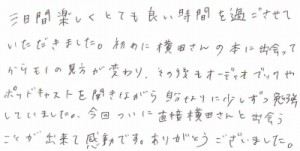 三日間楽しくとても良い時間を過ごさせて
いただきました。初めに横田さんの本に出会って
からモノの見方が変わり、その後もオーディオブックや
ポッドキャストを聞きながら自分なりに少しずつ勉強
していました。今回ついに直接横田さんと出会う
ことが出来て感動です。ありがとうございました。